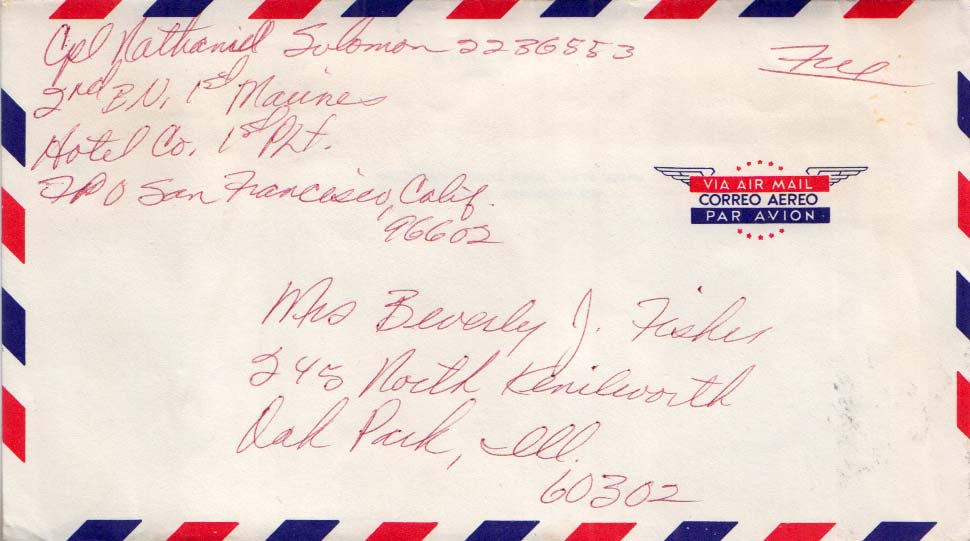 Cpl Nathaniel Solomon 2236553
Free
2nd B.N. 1st Marines
Hotel Co. 1st Plt.
FPO San Francisco, Calif.
96602
VIA AIR MAIL
CORREO AEREO
PAR AVION
Mrs Beverly J. Fisher
245 North Kenilworth
Oak Park, Ill.
60302